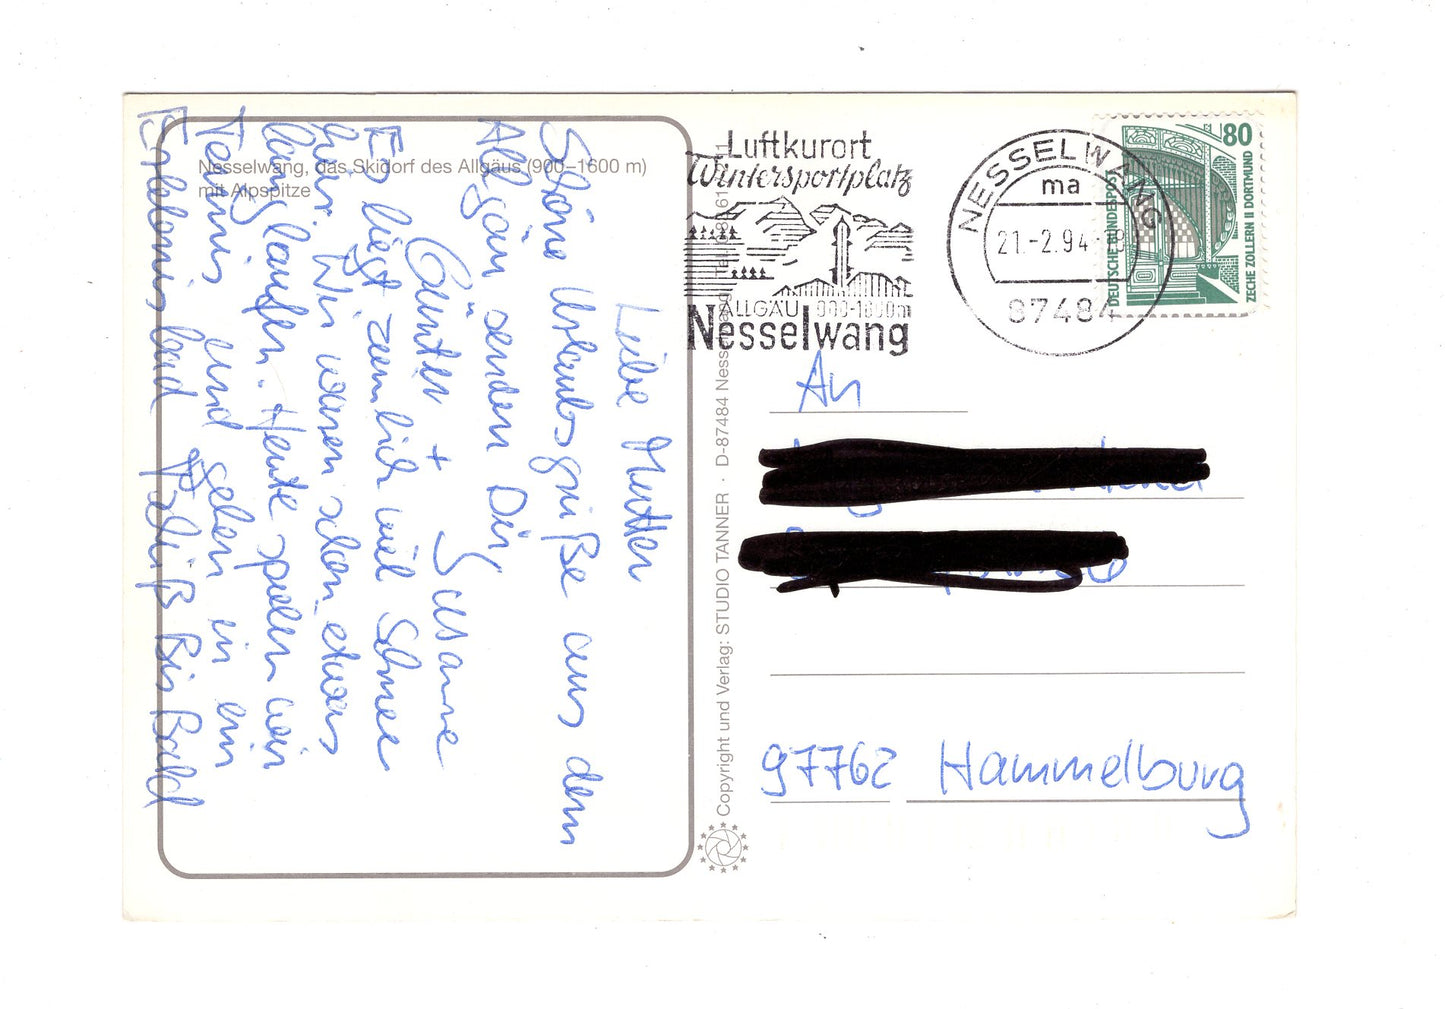 Nesselwang, das Skidorf des Allgäus (900–1600 m)
mit Alpspitze
Liebe Mutter
Schöne Urlaubsgrüße aus dem
Allgäu senden Dir
Günter + Susanne
Es liegt ziemlich viel Schnee
hier. Wir waren schon etwas
langlaufen. Heute spielen wir
Tennis und gehen in ein
Erlebnisbad Tschüß Bis Bald
Copyright und Verlag: STUDIO TANNER · D-87484 Nesselwang
Luftkurort
Wintersportplatz
ALLGÄU 900-1600m
Nesselwang
NESSELWANG
ma
21.-2.94-18
87484
80
DEUTSCHE BUNDESPOST
ZECHE ZOLLERN II DORTMUND
An
97762 Hammelburg